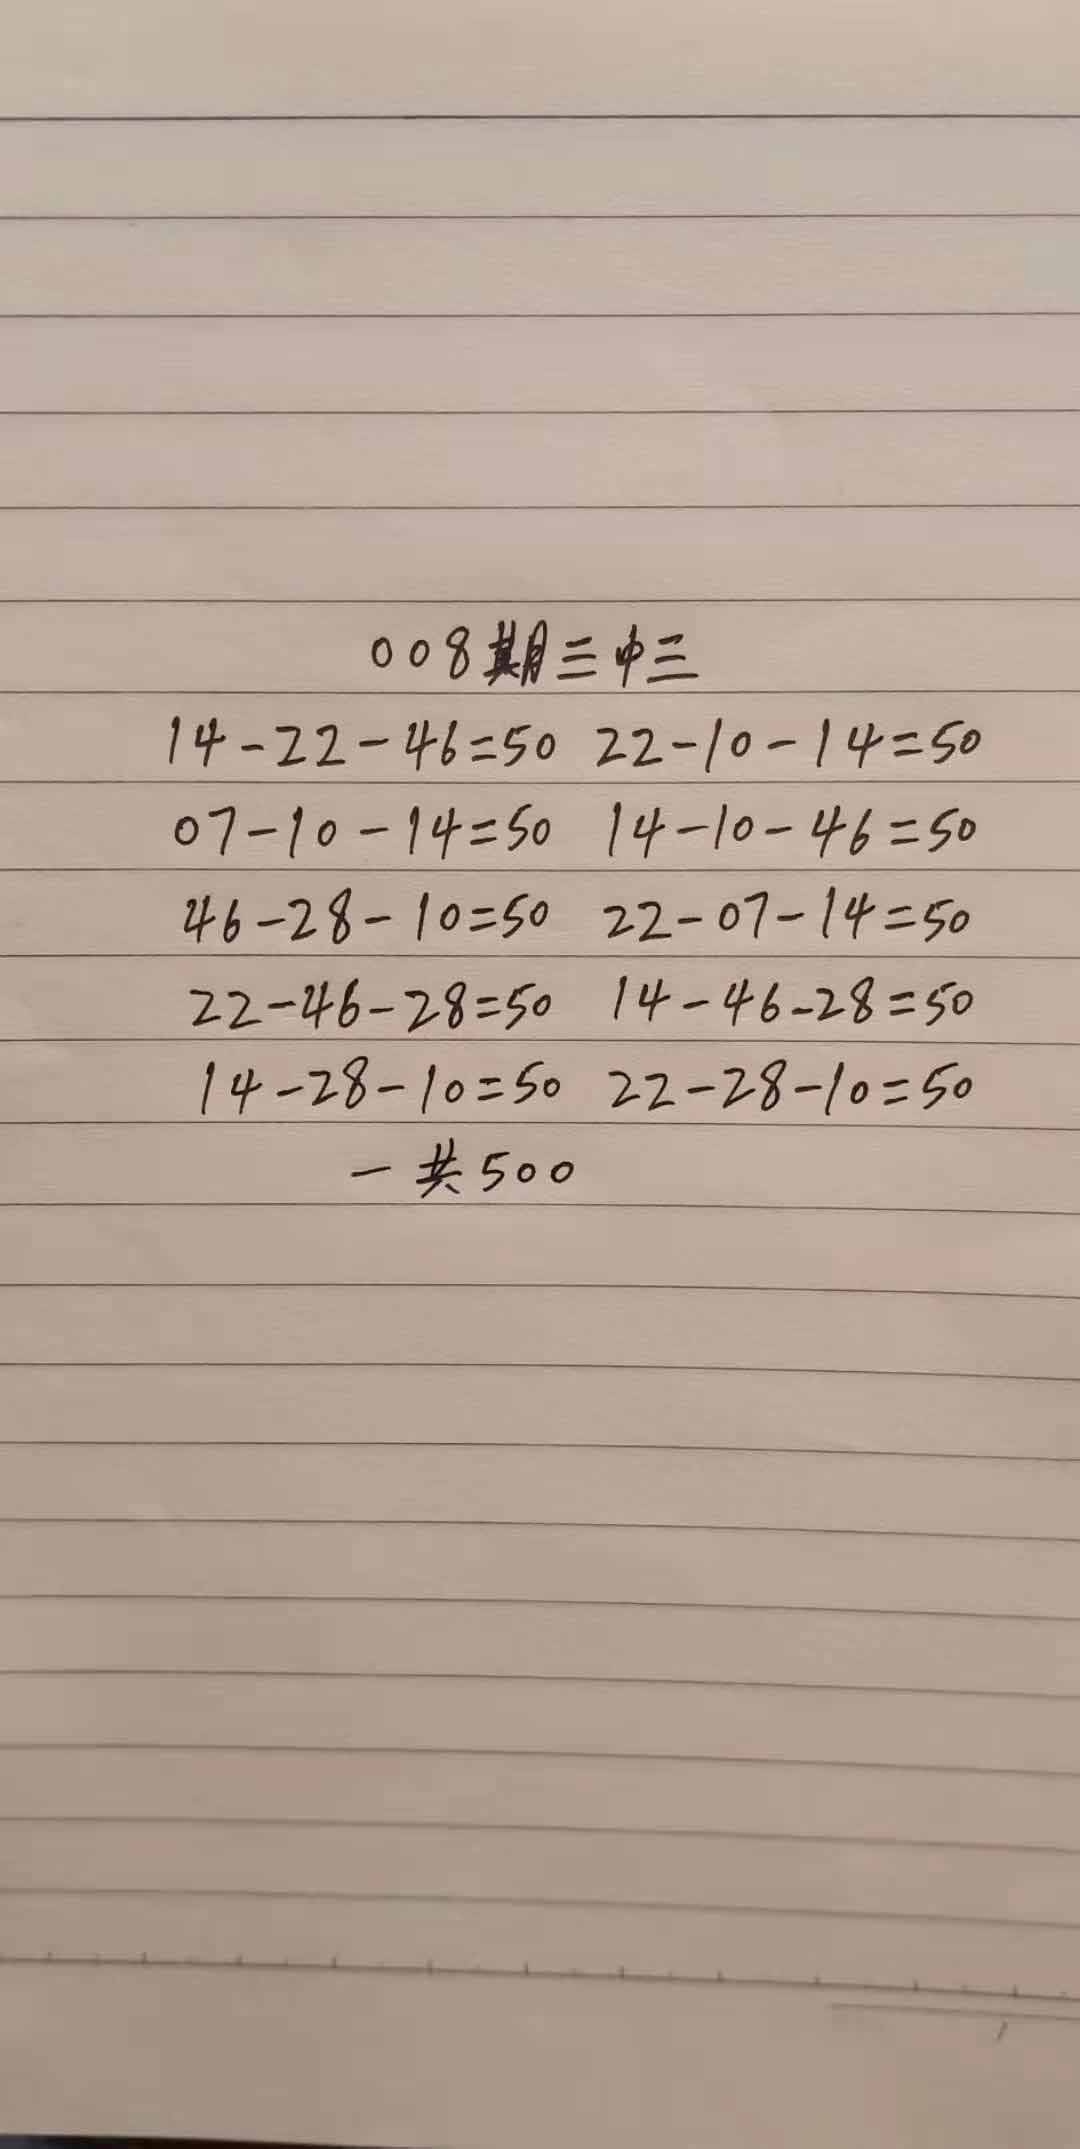 008期三中三
14-22-46=50 22-10-14=50
07-10-14=50 14-10-46=50
46-28-10=50 22-07-14=50
22-46-28=50 14-46-28=50
14-28-10=50 22-28-10=50
一共500